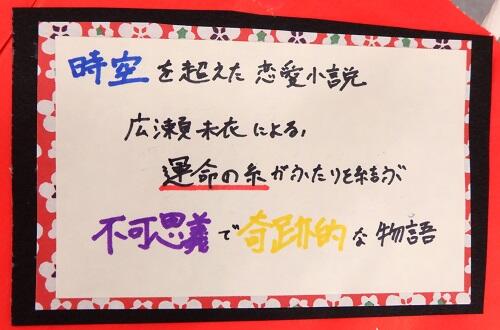 時空を超えた恋愛小説
広瀬未衣による,
運命の糸がふたりを結ぶ
不可思議で奇跡的な物語